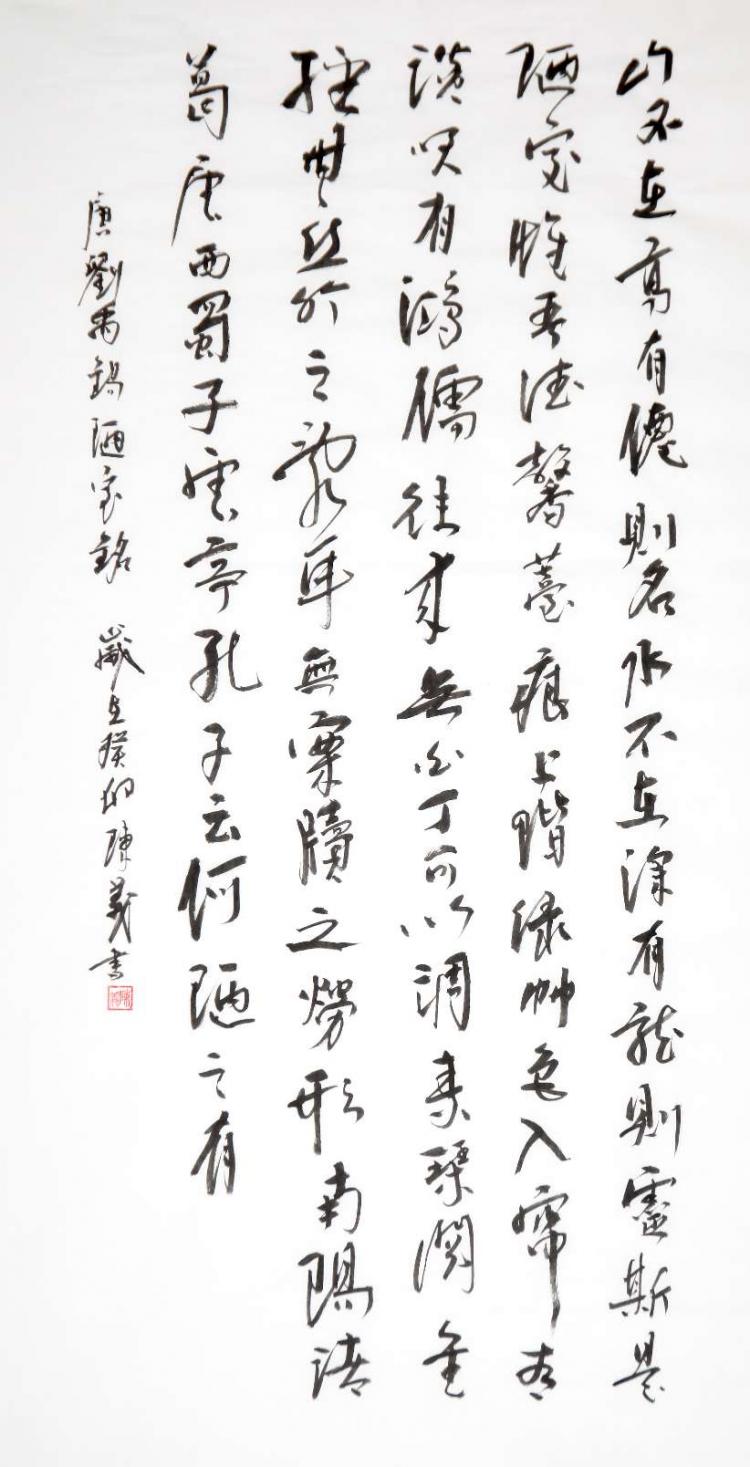 山不在高有僊則名水不在深有龍則靈斯是
陋室惟吾德馨薹痕上階綠艸色入簾青
談咲有鴻儒往來無白丁可以調素琴閱金
經無絲竹之亂耳無案牘之勞形南陽諸
葛廬西蜀子雲亭孔子云何陋之有
唐劉禹錫陋室銘 歲在癸卯陳義書